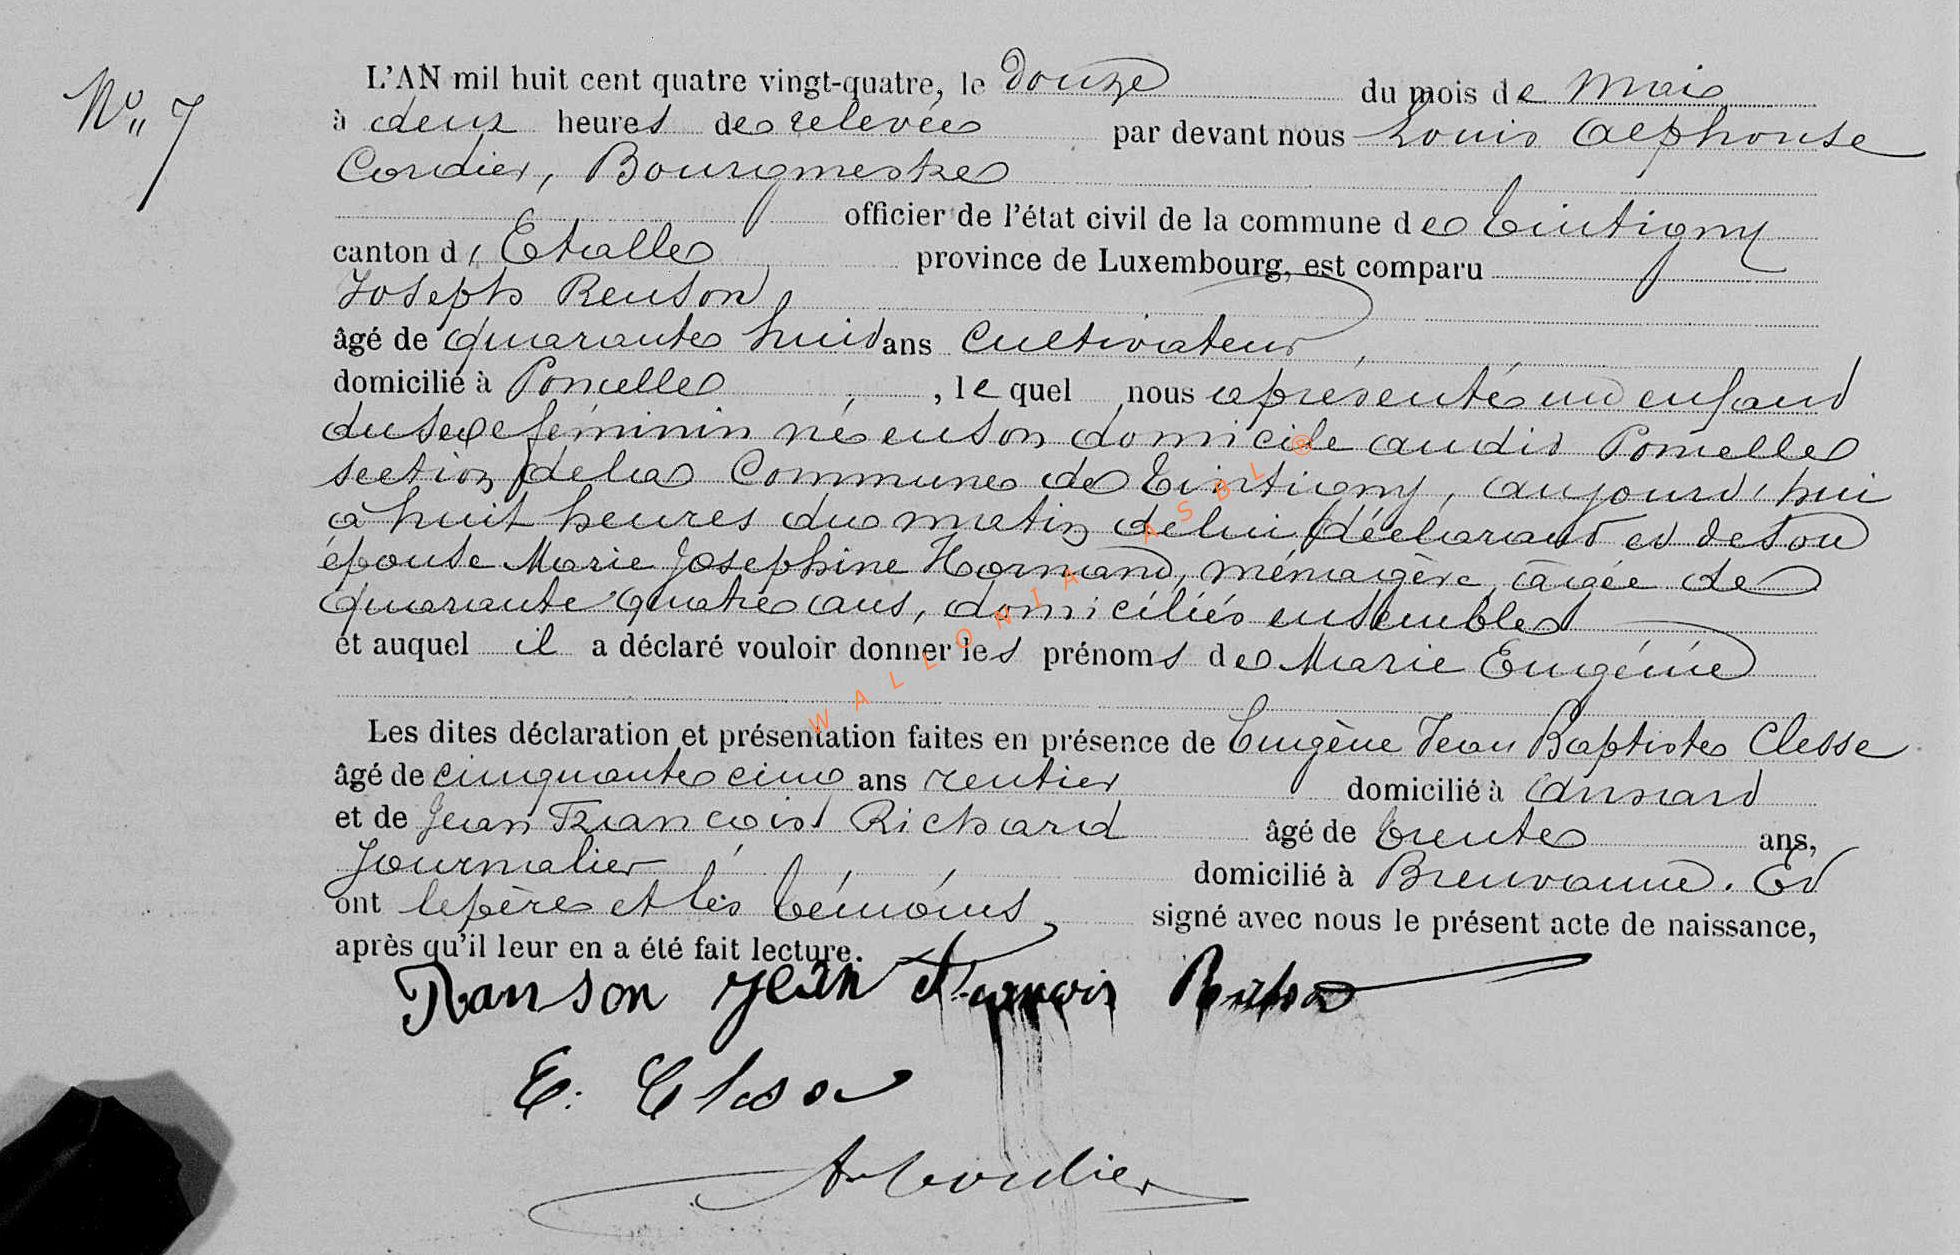 N° 7
L'AN mil huit cent quatre vingt-quatre, le Douze du mois de Mai
à deux heures de relevée par devant nous Louis Alphonse
Cordier, Bourgmestre
officier de l'état civil de la commune de Tintigny
canton d'Etalle province de Luxembourg, est comparu
Joseph Renson
âgé de quarante huit ans Cultivateur,
domicilié à Poncelle, lequel nous a présenté un enfant
du sexe féminin né en son domicile audit Poncelle
section de la Commune de Tintigny, aujourd'hui
à huit heures du matin de lui déclarant et de son
épouse Marie Josephine Hormand, ménagère, âgée de
quarante quatre ans, domiciliés ensemble
et auquel il a déclaré vouloir donner les prénoms de Marie Eugénie
Les dites déclaration et présentation faites en présence de Eugène Jean Baptiste Clesse
âgé de cinquante cinq ans rentier domicilié à Ansart
et de Jean François Richard âgé de trente ans,
Journalier domicilié à Breuvanne. Et
ont le père et les témoins signé avec nous le présent acte de naissance,
après qu'il leur en a été fait lecture.
Ranson Jean François
E. Clesse
A. Cordier
WALLONIA ASBL ®